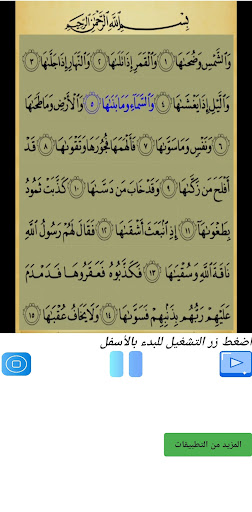 بِسْمِ اللَّهِ الرَّحْمَٰنِ الرَّحِيمِ
وَالشَّمْسِ وَضُحَىٰهَا ١ وَالْقَمَرِ إِذَا تَلَىٰهَا ٢ وَالنَّهَارِ إِذَا جَلَّىٰهَا ٣
وَاللَّيْلِ إِذَا يَغْشَىٰهَا ٤ وَالسَّمَاءِ وَمَا بَنَىٰهَا ٥ وَالْأَرْضِ وَمَا طَحَىٰهَا
٦ وَنَفْسٍ وَمَا سَوَّىٰهَا ٧ فَأَلْهَمَهَا فُجُورَهَا وَتَقْوَىٰهَا ٨ قَدْ
أَفْلَحَ مَن زَكَّىٰهَا ٩ وَقَدْ خَابَ مَن دَسَّىٰهَا ١٠ كَذَّبَتْ ثَمُودُ
بِطَغْوَىٰهَا ١١ إِذِ انبَعَثَ أَشْقَىٰهَا ١٢ فَقَالَ لَهُمْ رَسُولُ اللَّهِ
نَاقَةَ اللَّهِ وَسُقْيَىٰهَا ١٣ فَكَذَّبُوهُ فَعَقَرُوهَا فَدَمْدَمَ
عَلَيْهِمْ رَبُّهُم بِذَنبِهِمْ فَسَوَّىٰهَا ١٤ وَلَا يَخَافُ عُقْبَىٰهَا ١٥
اضغط زر التشغيل للبدء بالأسفل
المزيد من التطبيقات